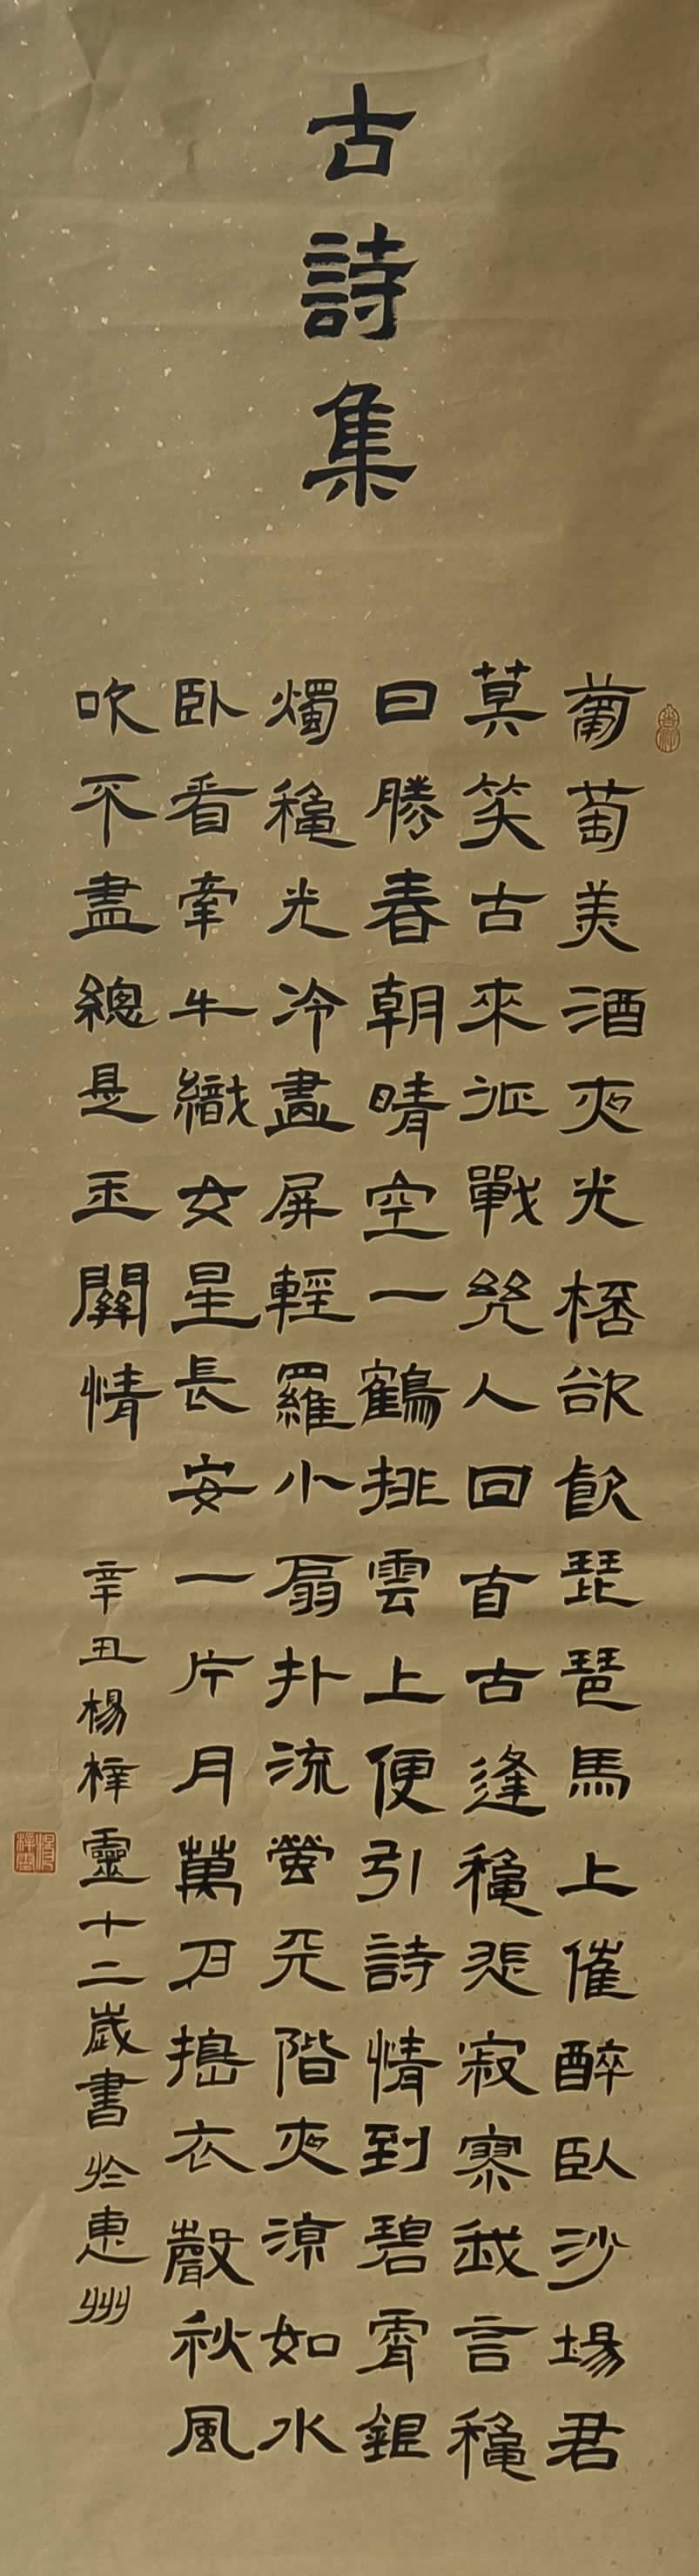 古詩集
葡萄美酒夜光桮欲飲琵琶馬上催醉臥沙場君
莫笑古來征戰幾人回自古逢龝悲寂寥我言龝
日勝春朝晴空一鶴排雲上便引詩情到碧霄銀
燭龝光冷畫屏輕羅小扇扑流螢天階夜涼如水
臥看牽牛織女星長安一片月萬户搗衣聲秋風
吹不盡總是玉關情
辛丑楊梓靈十二歲書於惠州